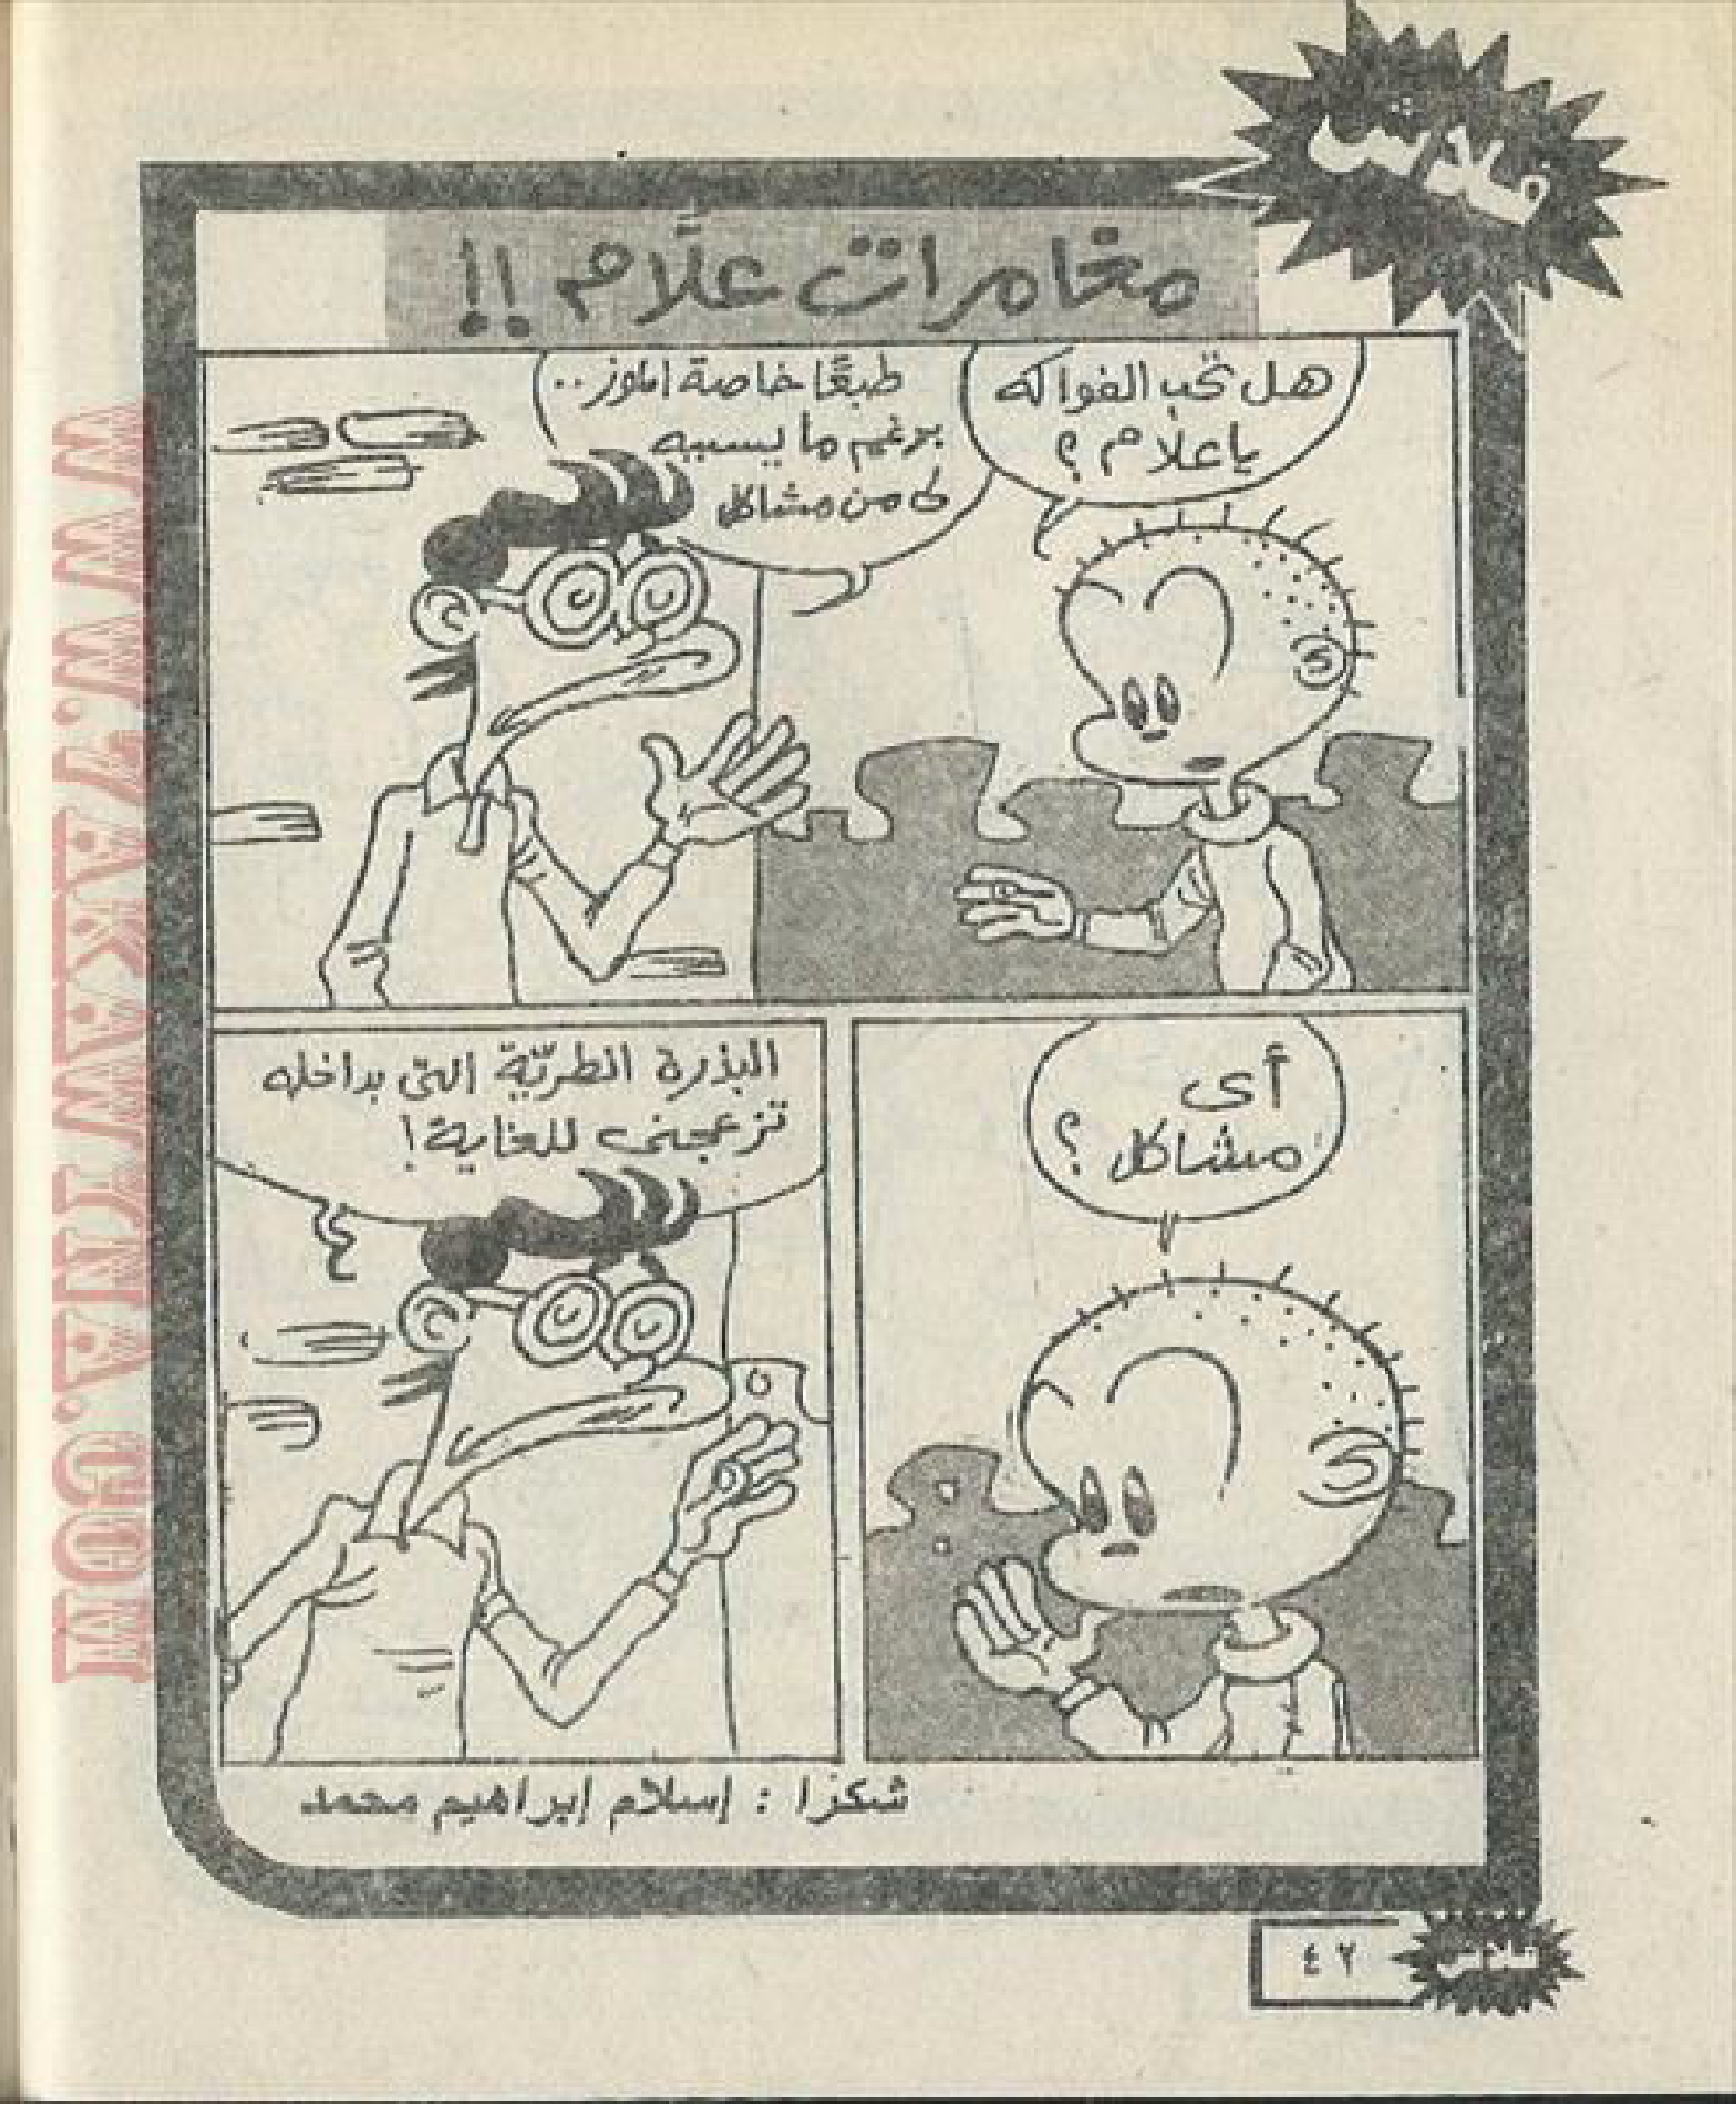 فلاش
مغامرات علَّام !!
هل تحب الفواكه
يا علام ؟
طبعًا خاصة الموز ..
برغم ما يسببه
لى من مشاكل
أى
مشاكل ؟
البذرة الطريّة التى بداخله
تزعجنى للغاية !
شكرًا : إسلام إبراهيم محمد
٤٢
فلاش
WWW.ARAWINA.COM